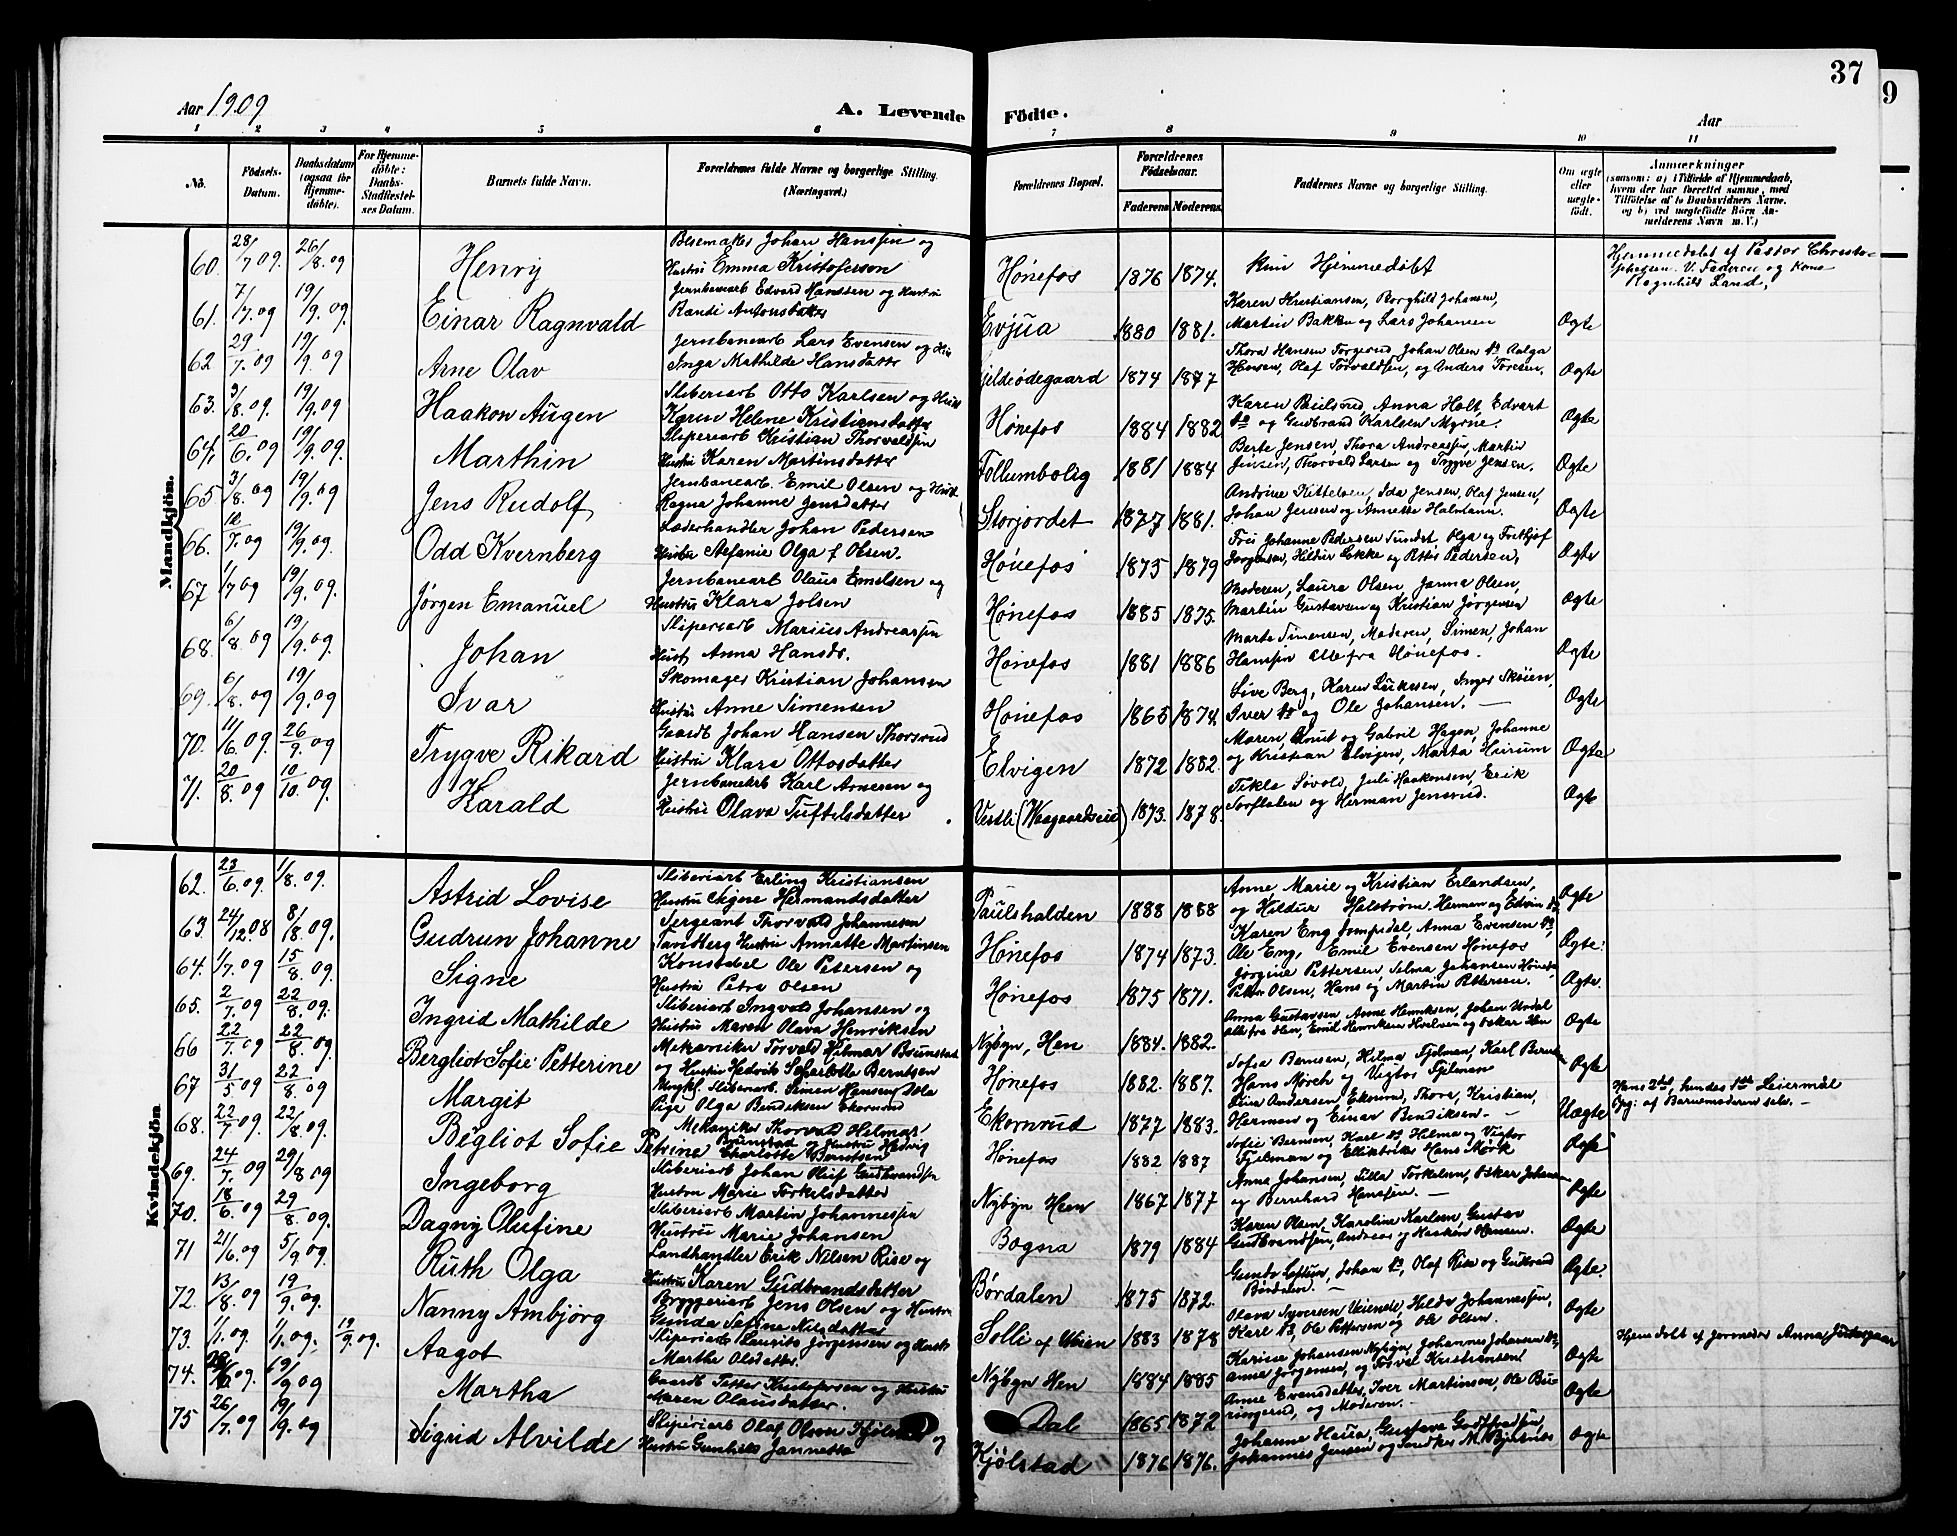 37
9
Aar 1909
A. Levende Födte.
Aar
1 2 3 4 5 6 7 8 9 10 11
No.
Födsels-Datum.
Daabsdatum (ogsaa for Hjemme-döbte).
For Hjemme-döbte: Daabs-Stadfæstel-ses Datum.
Barnets fulde Navn.
Forældrenes fulde Navne og borgerlige Stilling (Næringsvei.)
Forældrenes Bopæl.
Forældrenes Födselsaar.
Faderens Moderens.
Faddernes Navne og borgerlige Stilling.
Om ægte eller uægte-födt.
Anmærkninger
(saasom: a) i Tilfælde af Hjemmedaab, hvem der har forrettet samme, med Tilföielse af to Daabsvidners Navne, og b) ved uægtefödte Börn An-melderens Navn m. V.)
Mandkjön.
60. 28/7 09. 26/8. 09 Henry
Johan Hanssen og Hustru Emma Kristofersen
Hønefos 1876 1874. Kun Hjemmedøbt
Hjemmedøbt af Pastor Christo-phersen. V. Faderen og Kone Ragnhild Land,
61. 7/7. 09 19/9. 09. Einar Ragnvald
Jernbanearb Edvard Hanssen og Hustru Randi Antonsdatter
Evjua 1880 1881. Karen Kristiansen, Borghild Johansen, Martin Bakken og Lars Johansen Ægte
62 29/7. 09 19/9. 09 Arne Olav
Jernbanearb Lars Evensen og Hus Inga Mathilde Hansdatter
Gjeldeødegaard 1874 1877 Thora Hansen Torgerud Johan Olsen Olaf Torvaldsen, og Anders Toresen. Ægte
63. 3/8. 09. 19/9. 09 Haakon Augen
Sliberiarb Otto Karlsen og Hust Karen Helene Kristiansdatter
Hønefos 1884 1882 Karen Paulsrud, Anna Holt, Edvart og Gudbrand Karlsen Myrne. Ægte
64. 20/6. 09 19/9. 09. Marthin
Sliperiarb Kristian Thorvaldsen Hustru Karen Martinsdatter
Follumbolig 1881 1884 Berte Jensen, Thora Andreassen, Martin Jensen, Thorvald Larsen og Trygve Jensen. Ægte
65 3/8. 09 19/9. 09 Jens Rudolf
Jernbanearb. Emil Olsen og Hust Ragna Johanne Jensdatter
Storjordet 1877 1881. Andrine Kittelsen, Ida Jensen, Olaf Jensen, Johan Jensen og Annette Halmann. Ægte
66. 12/7. 09 19/9. 09. Odd Kvernberg
Læderhandler Johan Pedersen Hustru Stefanie Olga f Olsen.
Hønefos 1875 1879 Johanne Pedersen Sundet Olga og Fritthjof Jørgensen, Hildur Løkke og Petter Pedersen, Ægte
67 1/7 09 19/9. 09. Jørgen Emanuel
Jernbanearb Olaus Emelsen og Hustru Klara Jolsen
Hønefos 1885 1875. Moderen, Laura Olsen, Janna Olsen, Martin Gustavsen og Kristian Jørgensen Ægte
68. 6/8. 09 19/9. 09. Johan
Sliperiarb Marius Andreassen Hust Anna Hansdr.
Hønefos 1881 1886 Marte Simensen, Moderen, Simen, Johan Hanssen alle fra Hønefos. Ægte
69. 6/8. 09 19/9. 09 Ivar
Skomager Kristian Johansen Hustru Anne Simensen
Hønefos 1865 1874. Live Berg, Karen Inger Skøien, Iver og Ole Johansen. — Ægte
70. 11/6. 09. 26/9. 09 Trygve Rikard
Gaardb Johan Hansen Thorsrud Hustru Klara Ottosdatter
Elvigen 1872 1882. Maren, Knut og Gabriel Hagen, Johanne og Kristian Elvigen, Marta Heirum Ægte
71. 20/8. 09 10/10. 09. Harald
Jernbanearb Karl Arnesen og Hustru Olava Tuftelsdatter
Vestli (Waagaardseie) 1873. 1878. Tekle Søvold, Juli Haakonsen, Erik og Herman Jensrud. Ægte
Kvindekjön
62. 23/6. 09. 1/8. 09. Astrid Lovise
Sliberiarb Erling Kristiansen Hustru Signe Hermandsdatter
Paulshalden 1888 1888 Anne Marie og Kristian Erlandsen, og Hildur Halstrøm. Herman og Edvin Ægte
63. 24/12. 08 8/8. 09. Gudrun Johanne
Sergeant Thorvald Johannesen Tandberg Hustru Annette Martinsen
Hønefos 1874 1873. Karen Eng Anna Evensen Ole Eng, Emil Evensen Hønefos Ægte.
64. 1/7. 09 15/8. 09. Signe
Konstabel Ole Petersen og Hustru Petra Olsen
Hønefos 1875 1871. Jørgine Pettersen, Selma Johansen Hønefos Petter Olsen, Hans og Martin Pettersen. Ægte.
65. 2/7. 09 22/8. 09. Ingrid Mathilde
Sliberiarb Ingvald Johansen og Hustru Maren Olava Henriksen
Nybyn, Hen 1884. 1882. Anna Gustavsen, Anne Henriksen, Johan alle fra Hen, Emil Henriksen og Oskar Hen Ægte
66 22/7. 09 22/8. 09 Bergliot Sofie Petterine
Mekaniker Torvald Hilmar Brunstad og Hustru Hedvik Scharlotte Berntsen
Hønefos 1882. 1887. Sofie Berntsen, Hilma Fjelman, Karl Berntsen Hans Mørch og Vigtor Fjelman Ægte
67 31/5 09 22/8. 09 Margit
Ungkf Sliberiarb. Simen Hansen Pige Olga Bendiksen Ekornrud
Ekornrud 1877 1883. Andersen Ekornrud, Thora, Kristian, Herman og Einar Bendiksen. — Uægte
Hans 2det, hendes 1ste Leiermål Opg: af Barnemoderen selv. —
68. 22/7. 09. 22/8. 09. Bégliot Sofie Petrine
Mekaniker Thorvald Hilmar Brunstad og Hustru Hedvig Charlotte Berntsen
Hønefos 1882 1887 Sofie Berntsen, Karl Hilma og Vigtor Fjelman og Elliktriker Hans Mørk Ægte
69. 24/7. 09 29/8 09 Ingeborg
Sliberiarb Johan Oluf Gudbrandsen Hustru Marie Torkelsdatter
Nybyn Hen 1867 1877 Anna Johansen, Torkelsen, Oskar Johansen og Bernhard Hanssen. — Ægte
70. 18/6. 09 29/8. 09. Dagny Olufine
Sliberiarb Martin Johannessen Hustru Marie Johansen
Bogna 1879 1884 Karen Olsen, Karoline Karlsen, Gustav Gudbrandsen, Andreas og Haakon Hansen. Ægte
71 21/6. 09 5/9. 09. Ruth Olga
Landhandler Erik Nilsen Rise og Hustru Karen Gudbrandsdatter
Børdalen 1875 1872. Gunda Johan Olaf Rise og Gudbrand Børdalen. — Ægte.
72. 13/8. 09 19/9. 09. Nanny Ambjørg
Bryggeriarb Jens Olsen og Hustru Gunda Sefine Nilsdatter
Solli af Veien 1883 1878 Olava Syversen Veiende, Hilda Johannessen, Karl Ole Pettersen og Ole Olsen. Ægte
73. 1/1. 09. 1/1. 09. 19/9. 09. Aagot
Sliperiarb Laurits Jørgensen og Hustr Marthe Olsdatter.
Nybyn Hen 1884 1885 Karine Johansen Nybyn, Johannes Johansen Anne Jørgensen, og Torval Kristiansen Ægte
Hjemedøbt af Jormoder Anna
74. 09. 19/9 09 Martha
Gaardb Petter Kristofersen og Hustru Maren Olausdatter.
Dal 1865 1872 Anne Evensdatter, Iver Martinsen, Ole Bu-ringerud, og Moderen. — Ægte
75 26/7. 09 19/9. 09 Sigrid Alvilde
Sliperiarb Olaf Olsen og Hustru Gunhild
Kjølstad 1876 1876. Johanne Haua, Gustava Gudbrandsen, Johannes Jensen og Ægte